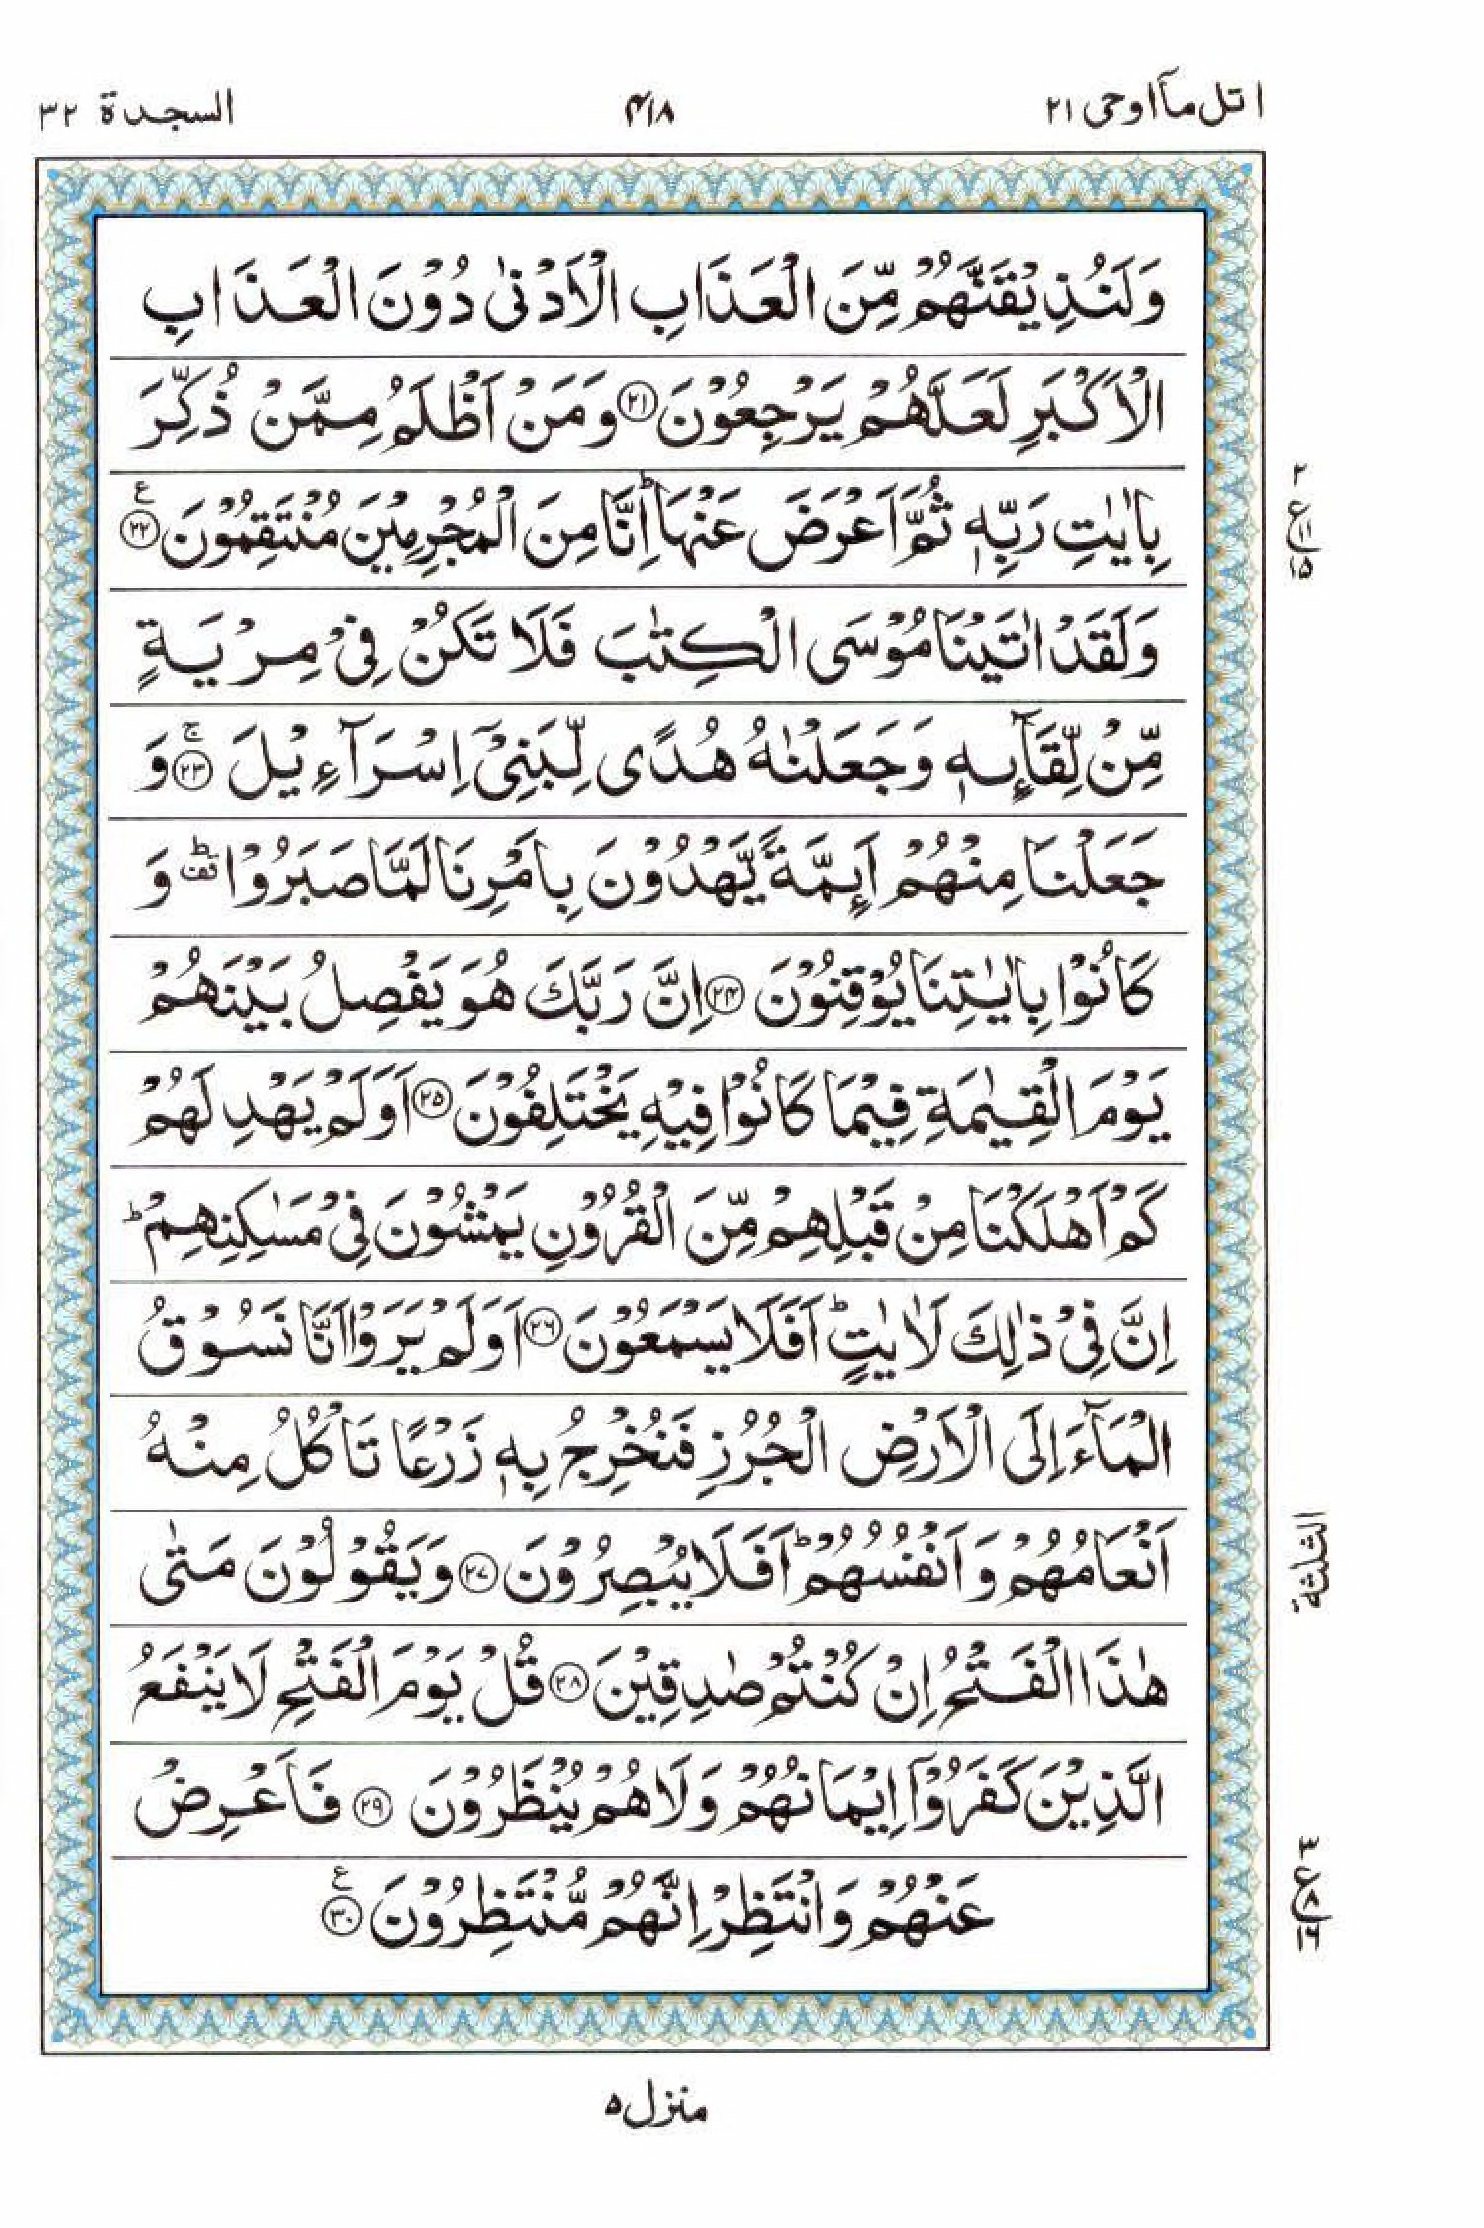 اتل مآاوحی ۲۱
۴۱۸
السجدة ۳۲
وَلَنُذِيْقَنَّهُمْ مِّنَ الْعَذَابِ الْاَدْنٰى دُوْنَ الْعَذَابِ
الْاَكْبَرِ لَعَلَّهُمْ يَرْجِعُوْنَ ﴿۲۱﴾ وَمَنْ اَظْلَمُ مِمَّنْ ذُكِّرَ
بِاٰيٰتِ رَبِّهٖ ثُمَّ اَعْرَضَ عَنْهَا ؕ اِنَّا مِنَ الْمُجْرِمِيْنَ مُنْتَقِمُوْنَ ﴿۲۲﴾ ع
۲
ع
۱۱
۱۵
وَلَقَدْ اٰتَيْنَا مُوْسَى الْكِتٰبَ فَلَا تَكُنْ فِيْ مِرْيَةٍ
مِّنْ لِّقَآئِهٖ وَجَعَلْنٰهُ هُدًى لِّبَنِيْٓ اِسْرَآءِيْلَ ﴿۲۳﴾ ۚ وَ
جَعَلْنَا مِنْهُمْ اَئِمَّةً يَّهْدُوْنَ بِاَمْرِنَا لَمَّا صَبَرُوْا ؕ قف وَ
كَانُوْا بِاٰيٰتِنَا يُوْقِنُوْنَ ﴿۲۴﴾ اِنَّ رَبَّكَ هُوَ يَفْصِلُ بَيْنَهُمْ
يَوْمَ الْقِيٰمَةِ فِيْمَا كَانُوْا فِيْهِ يَخْتَلِفُوْنَ ﴿۲۵﴾ اَوَلَمْ يَهْدِ لَهُمْ
كَمْ اَهْلَكْنَا مِنْ قَبْلِهِمْ مِّنَ الْقُرُوْنِ يَمْشُوْنَ فِيْ مَسٰكِنِهِمْ ؕ
اِنَّ فِيْ ذٰلِكَ لَاٰيٰتٍ ؕ اَفَلَا يَسْمَعُوْنَ ﴿۲۶﴾ اَوَلَمْ يَرَوْا اَنَّا نَسُوْقُ
الْمَآءَ اِلَى الْاَرْضِ الْجُرُزِ فَنُخْرِجُ بِهٖ زَرْعًا تَاْكُلُ مِنْهُ
اَنْعَامُهُمْ وَاَنْفُسُهُمْ ؕ اَفَلَا يُبْصِرُوْنَ ﴿۲۷﴾ وَيَقُوْلُوْنَ مَتٰى
الثلثة
هٰذَا الْفَتْحُ اِنْ كُنْتُمْ صٰدِقِيْنَ ﴿۲۸﴾ قُلْ يَوْمَ الْفَتْحِ لَا يَنْفَعُ
الَّذِيْنَ كَفَرُوْٓا اِيْمَانُهُمْ وَلَا هُمْ يُنْظَرُوْنَ ﴿۲۹﴾ فَاَعْرِضْ
عَنْهُمْ وَانْتَظِرْ اِنَّهُمْ مُّنْتَظِرُوْنَ ﴿۳۰﴾ ع
۳
ع
۸
۱۶
منزل ۵